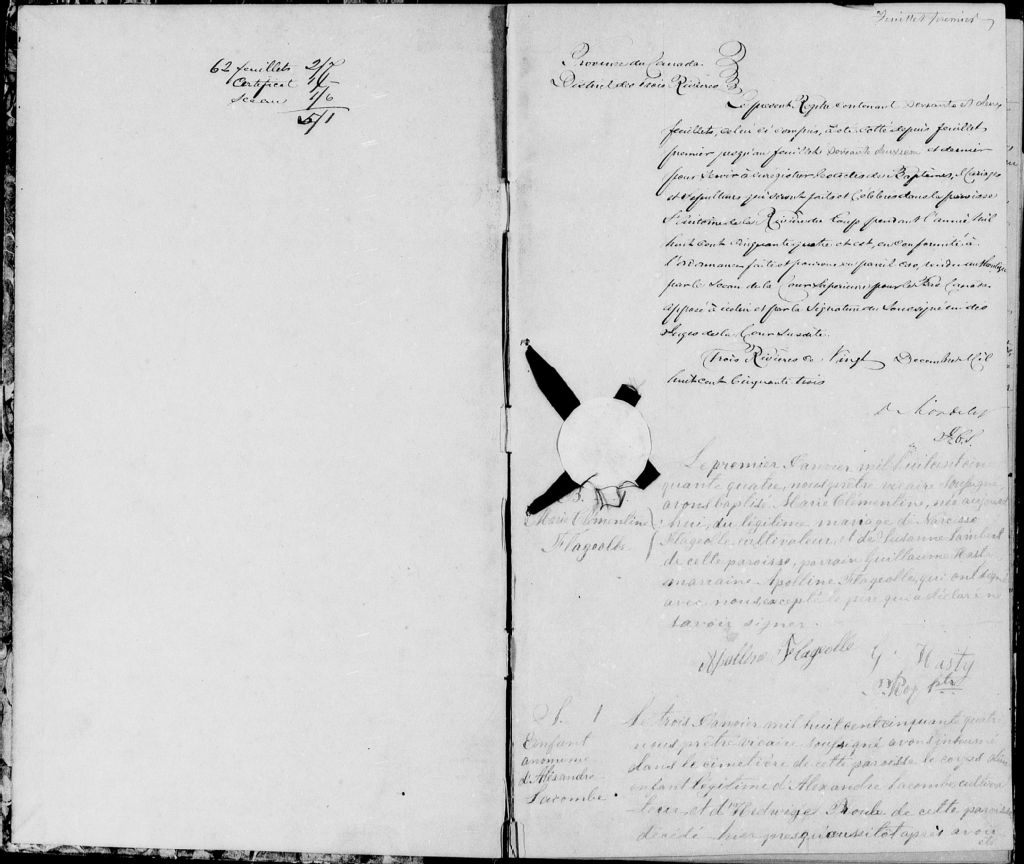 62 feuillets 2/7
Certificat 1/
Sceau 1/6
5/1
Feuillet premier
Province du Canada
District des Trois Rivières
Le présent Régistre contenant Soixante et deux
feuillets, celui ci compris, a été cotté depuis feuillet
premier jusqu'au feuillet Soixante deuxième et dernier
pour servir à enregistrer les actes de Baptêmes, Mariages
et Sépultures qui seront faits et Célébrés dans la paroisse
St Antoine de la Rivière du Loup pendant l'année Mil
huit cent Cinquante quatre et est, en conformité à
l'ordonnance faite et pourvue en pareil cas, authentique
par le Sceau de la Cour Supérieure pour le Bas Canada
apposé à icelui et par la Signature du Soussigné un des
Juges de la Cour Susdite.
Trois Rivières ce Vingt Décembre Mil
huit cent Cinquante trois
D. Mondelet
J.C.S.
Le premier Janvier mil huit cent cin
quante quatre, nous prêtre vicaire soussigné
avons baptisé Marie Clémentine, née aujourd
hui, du légitime mariage de Narcisse
Flageolle cultivateur, et de Susanne Lambert
de cette paroisse, parrain Guillaume Hasty
marraine Apolline Flageolle, qui ont signé
avec nous, excepté le père qui a déclaré ne
savoir signer.
B. 1
Marie Clémentine
Flageolle
Apolline Flageolle G. Hasty
Roy ptre
S. 1
L'enfant
anonyme
d'Alexandre
Lacombe
Le trois Janvier mil huit cent cinquante quatre
nous prêtre vicaire soussigné avons inhumé
dans le cimetière de cette paroisse le corps d'un
enfant légitime d'Alexandre Lacombe cultiva
teur et d'Hedwige Proule de cette paroisse
décédé hier presqu'aussitôt après avoir
été